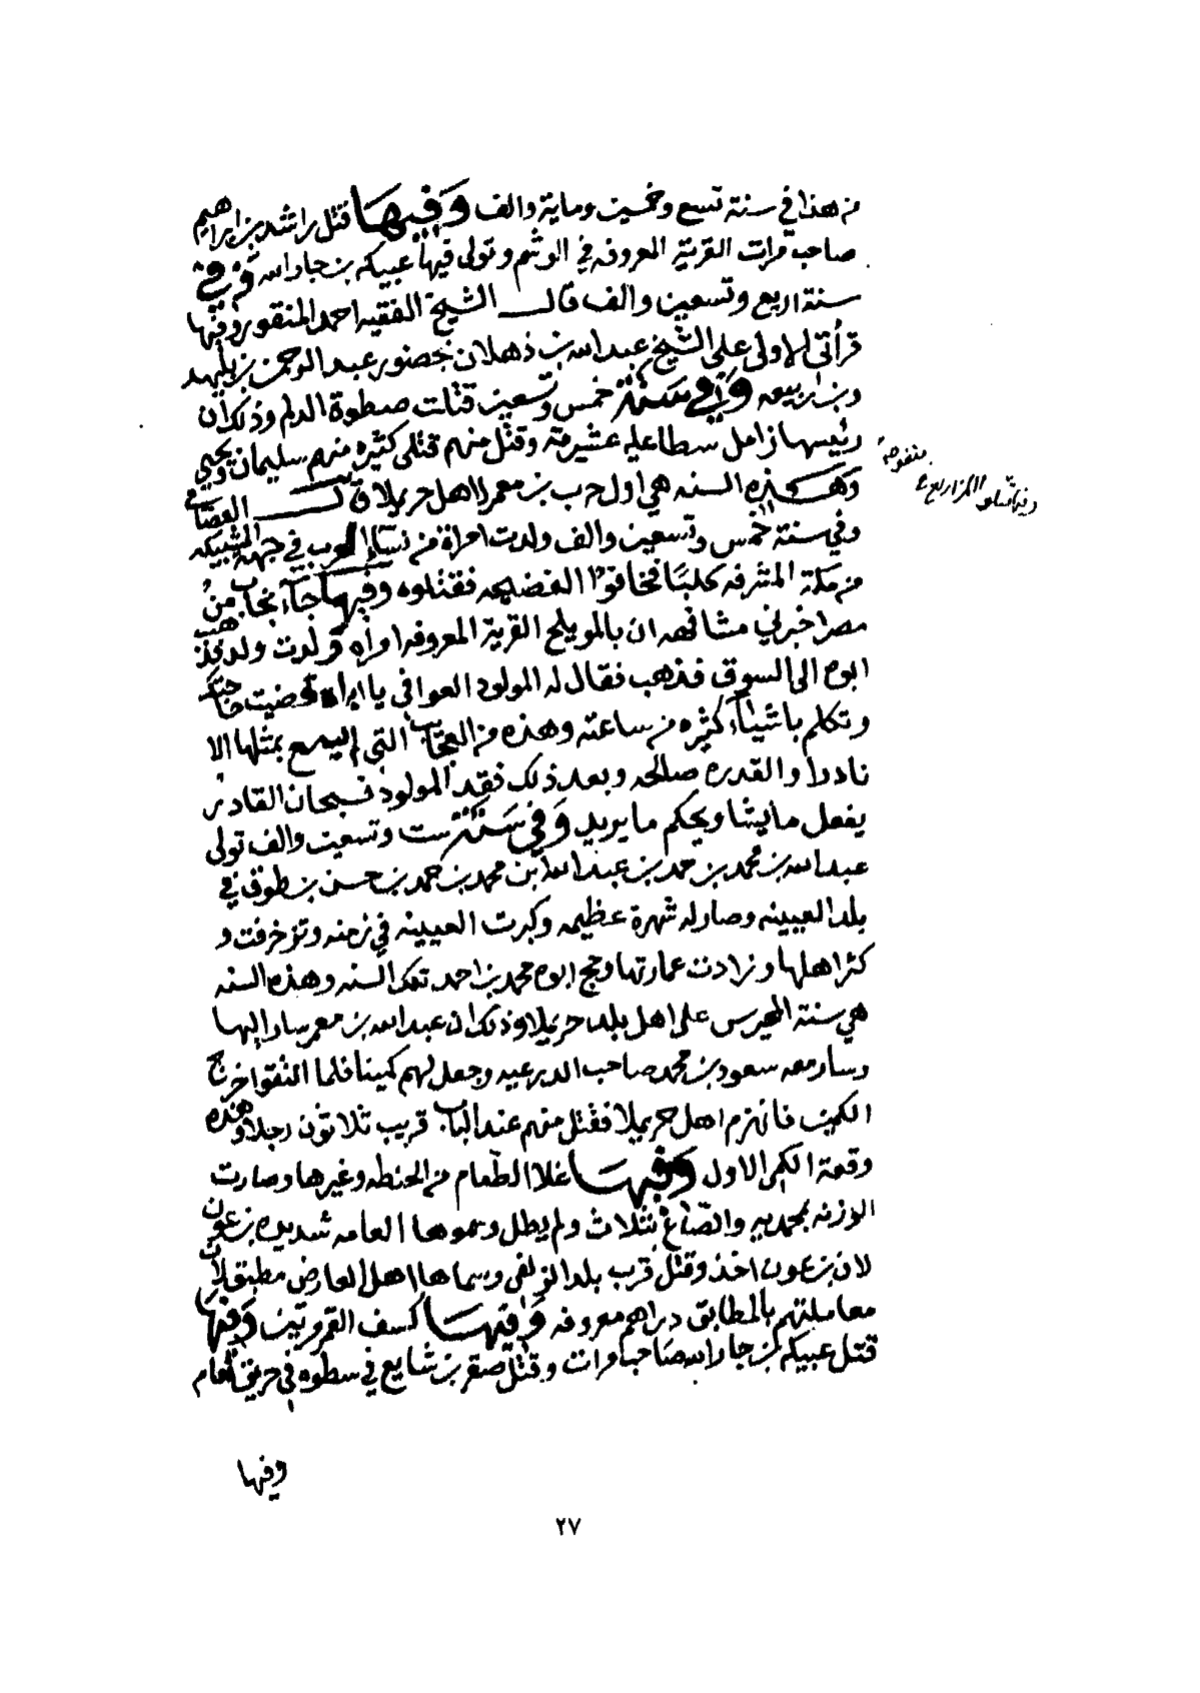 من هذا في سنة تسع وخمسين وماية والف وفيها قتل راشد بن ابراهيم
صاحب مرات القرية المعروفه في الوشم وتولى فيها عبيكه بن جار الله وفي
سنة اربع وتسعين والف قال الشيخ الفقيه احمد المنقور وفيها
قرأتي الاولى على الشيخ عبد الله بن ذهلان بحضور عبد الرحمن بن بليهد
وبن ربيعه وفي سنة خمس وتسعين قتلت سطوة الدلم وذلك أن
رئيسها زامل سطا عليه عشيرته وقتل منهم قتلى كثيره منهم سليمان ويحيى
وهذه السنه هي اول حرب بن معمر لاهل حريملا قال العصامي
وفي سنة خمس وتسعين والف ولدت امراة من نساء العرب في جهة الشبيكه
من مكة المشرفه كلبا فخافوا الفضيحه فقتلوه وفيها جاء نجاب من
مصر اخبرني مشافهه ان بالمويلح القرية المعروفه امراه ولدت ولد فذهب
ابوه الى السوق فذهب فقال له المولود العوافي يا ابراه قضيت حاجتك
وتكلم باشياء كثيره من ساعته وهذه من العجايب التي لم يسمع بمثلها الا
نادرا والقدره صالحه وبعد ذلك فقد المولود فسبحان القادر
يفعل ما يشا ويحكم ما يريد وفي سنة ست وتسعين والف تولى
عبد الله بن محمد بن حمد بن عبد الله بن محمد بن حمد بن حسن بن طوق في
بلد العيينه وصار له شهرة عظيمه وكبرت العيينه في زمنه وتزخرفت و
كثر اهلها وزادت عمارتها وحج ابوه محمد بن احمد تلك السنه وهذه السنه
هي سنة المحيرس على اهل بلد حريملا وذلك ان عبد الله بن معمر سار اليها
وسار معه سعود بن محمد صاحب الدرعيه وجعل لهم كمينا فلما التقوا خرج
الكمين فانهزم اهل حريملا فقتل منهم عند الباب قريب ثلاثون رجلا وهذه
وقعة الكمين الاول وفيها غلا الطعام من الحنطه وغيرها وصارت
الوزنه بمحمديه والصاع بثلاث ولم يطل وسموها العامه شديده بن عون
لان بن عون اخذ وقتل قرب بلد الزلفي وسماها اهل العارض مطبق لان
معاملتهم بالمطابق دراهم معروفه وفيها كسف القمر مرتين وفيها
قتل عبيكه بن جار الله صاحب مرات وقتل صقر بن شايع في سطوه في حريق نعام
وفيها
منفوحه
٢٧